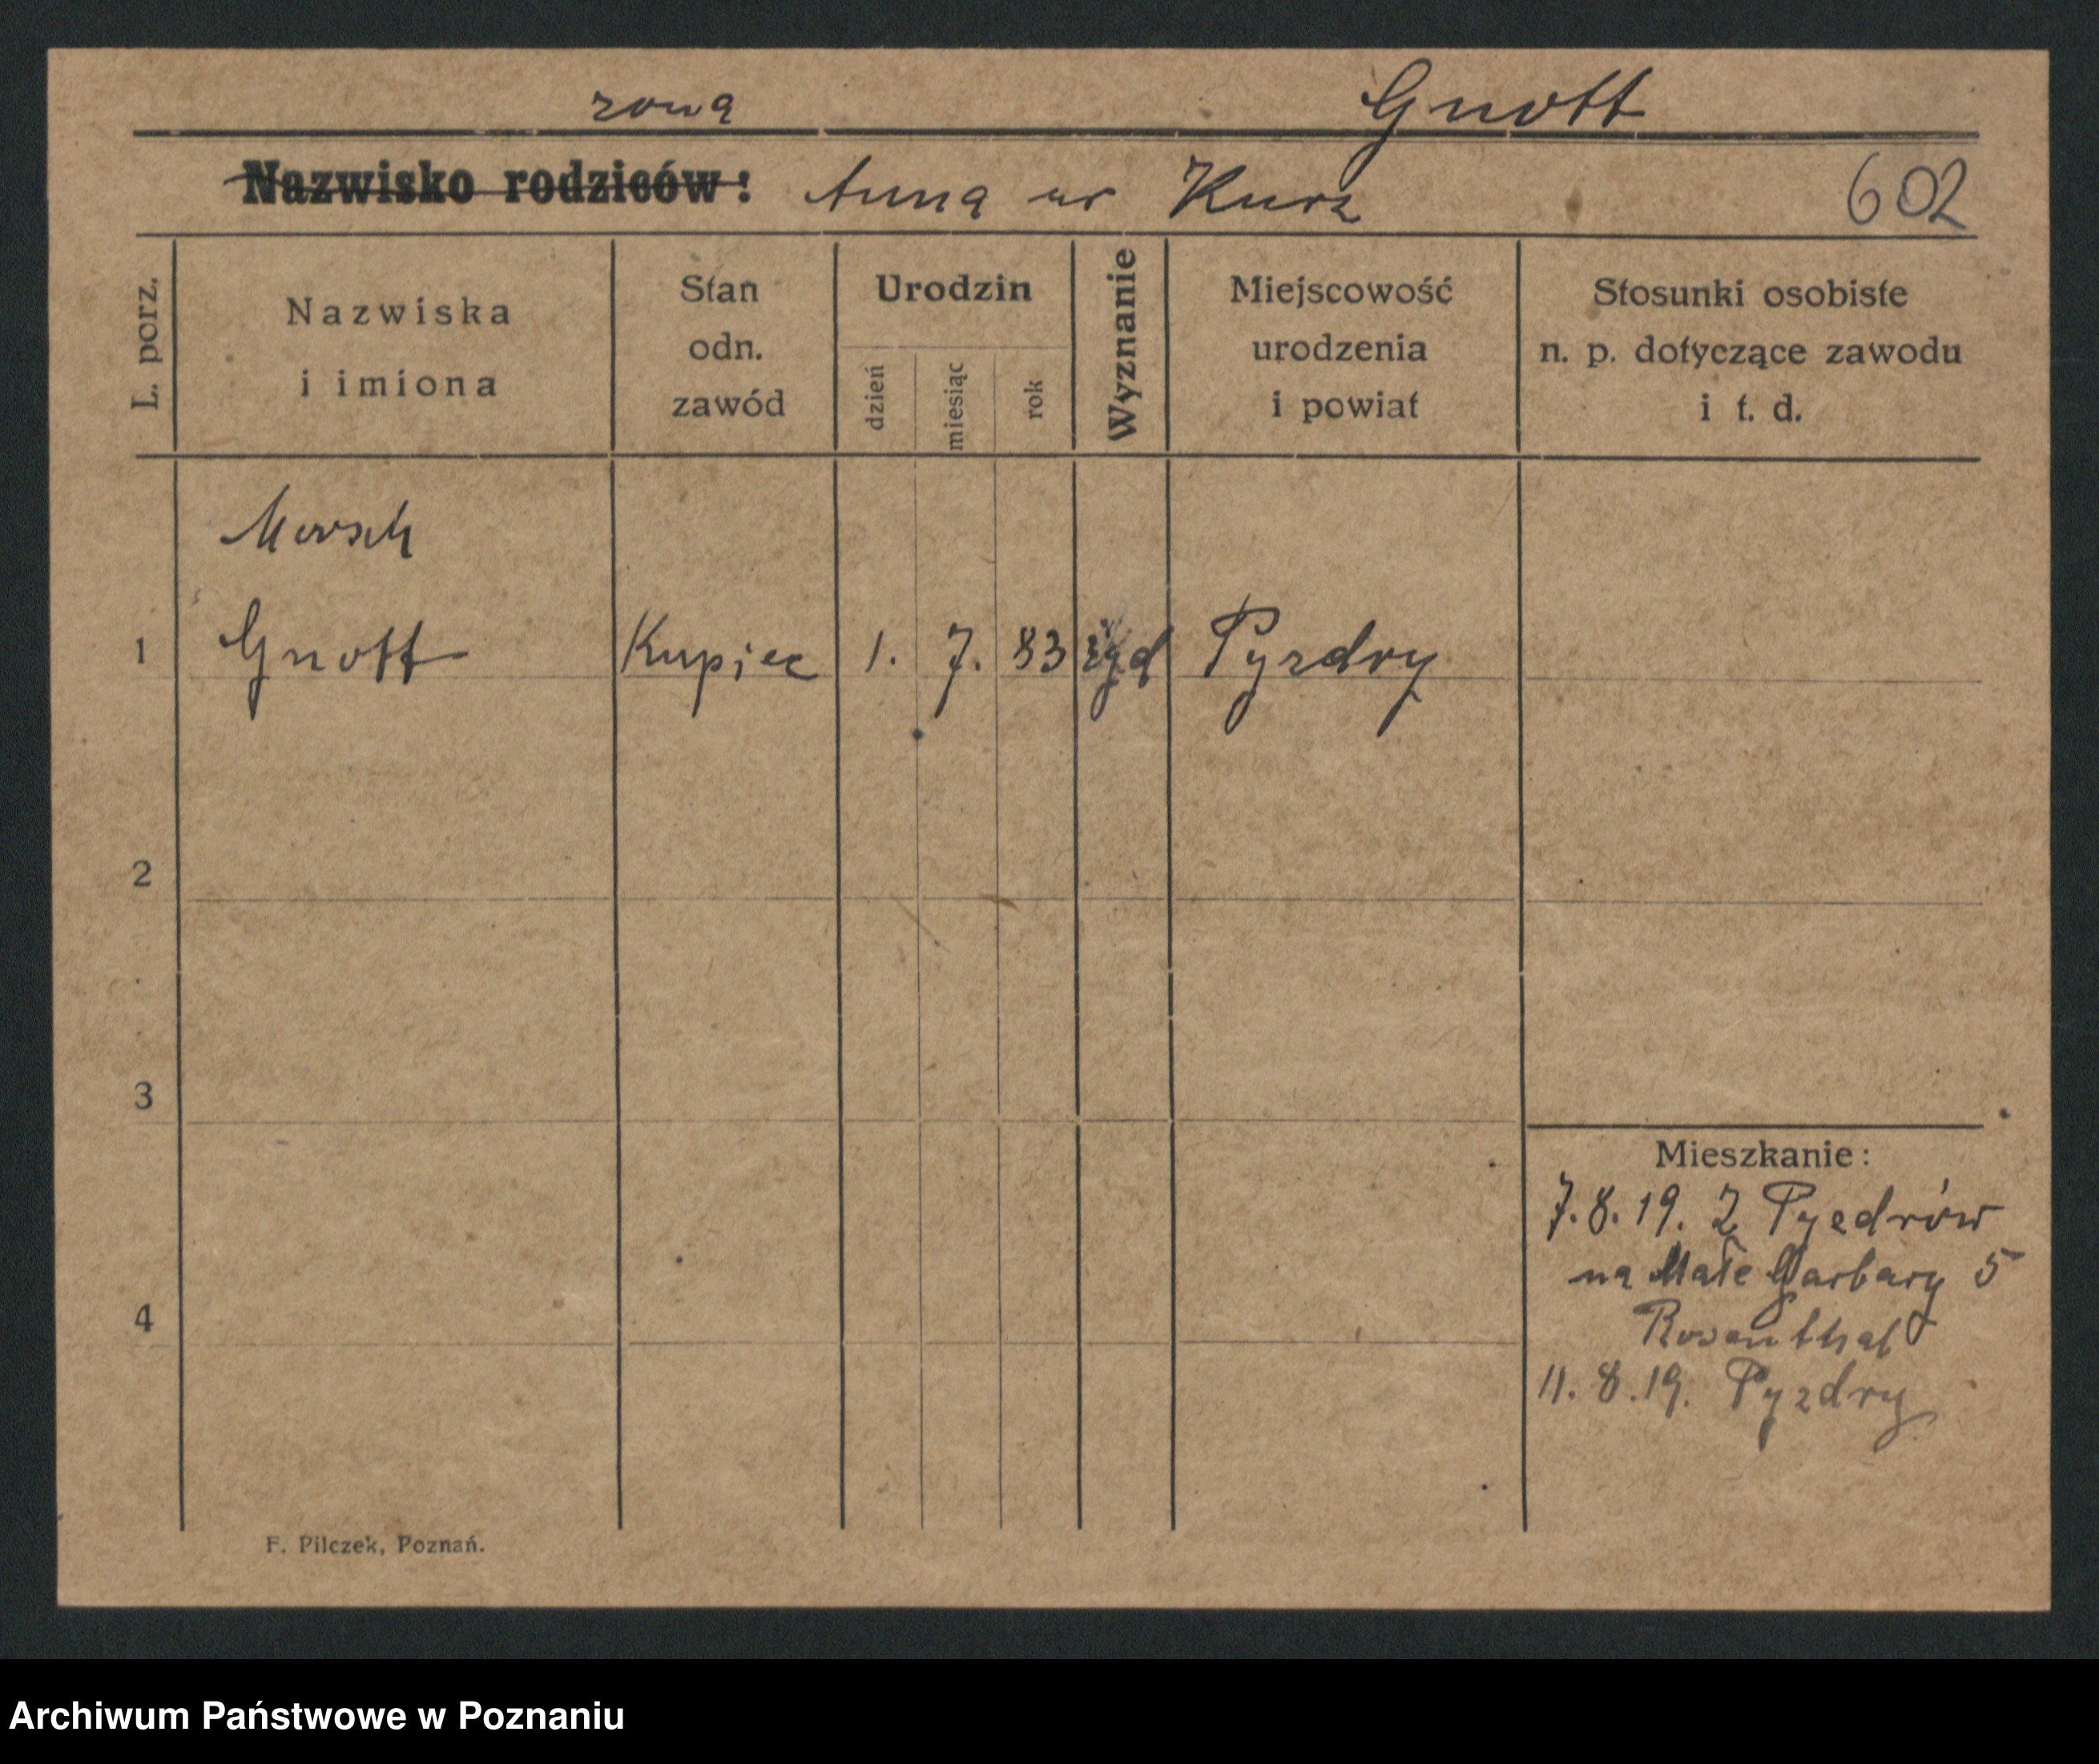 żona Gnott
Nazwisko rodziców: Anna ur Kurz 602
L. porz.
Nazwiska
i imiona
Stan
odn.
zawód
Urodzin
dzień
miesiąc
rok
Wyznanie
Miejscowość
urodzenia
i powiat
Stosunki osobiste
n. p. dotyczące zawodu
i t. d.
Gnott
1 Kupiec 1. 7. 83 żyd Pyzdry
2
3
4
Mieszkanie:
7.8.19. Z Pyzdrów
na Małe Garbary 5
Rosenthal
11.8.19. Pyzdry
F. Pilczek, Poznań.
Archiwum Państwowe w Poznaniu